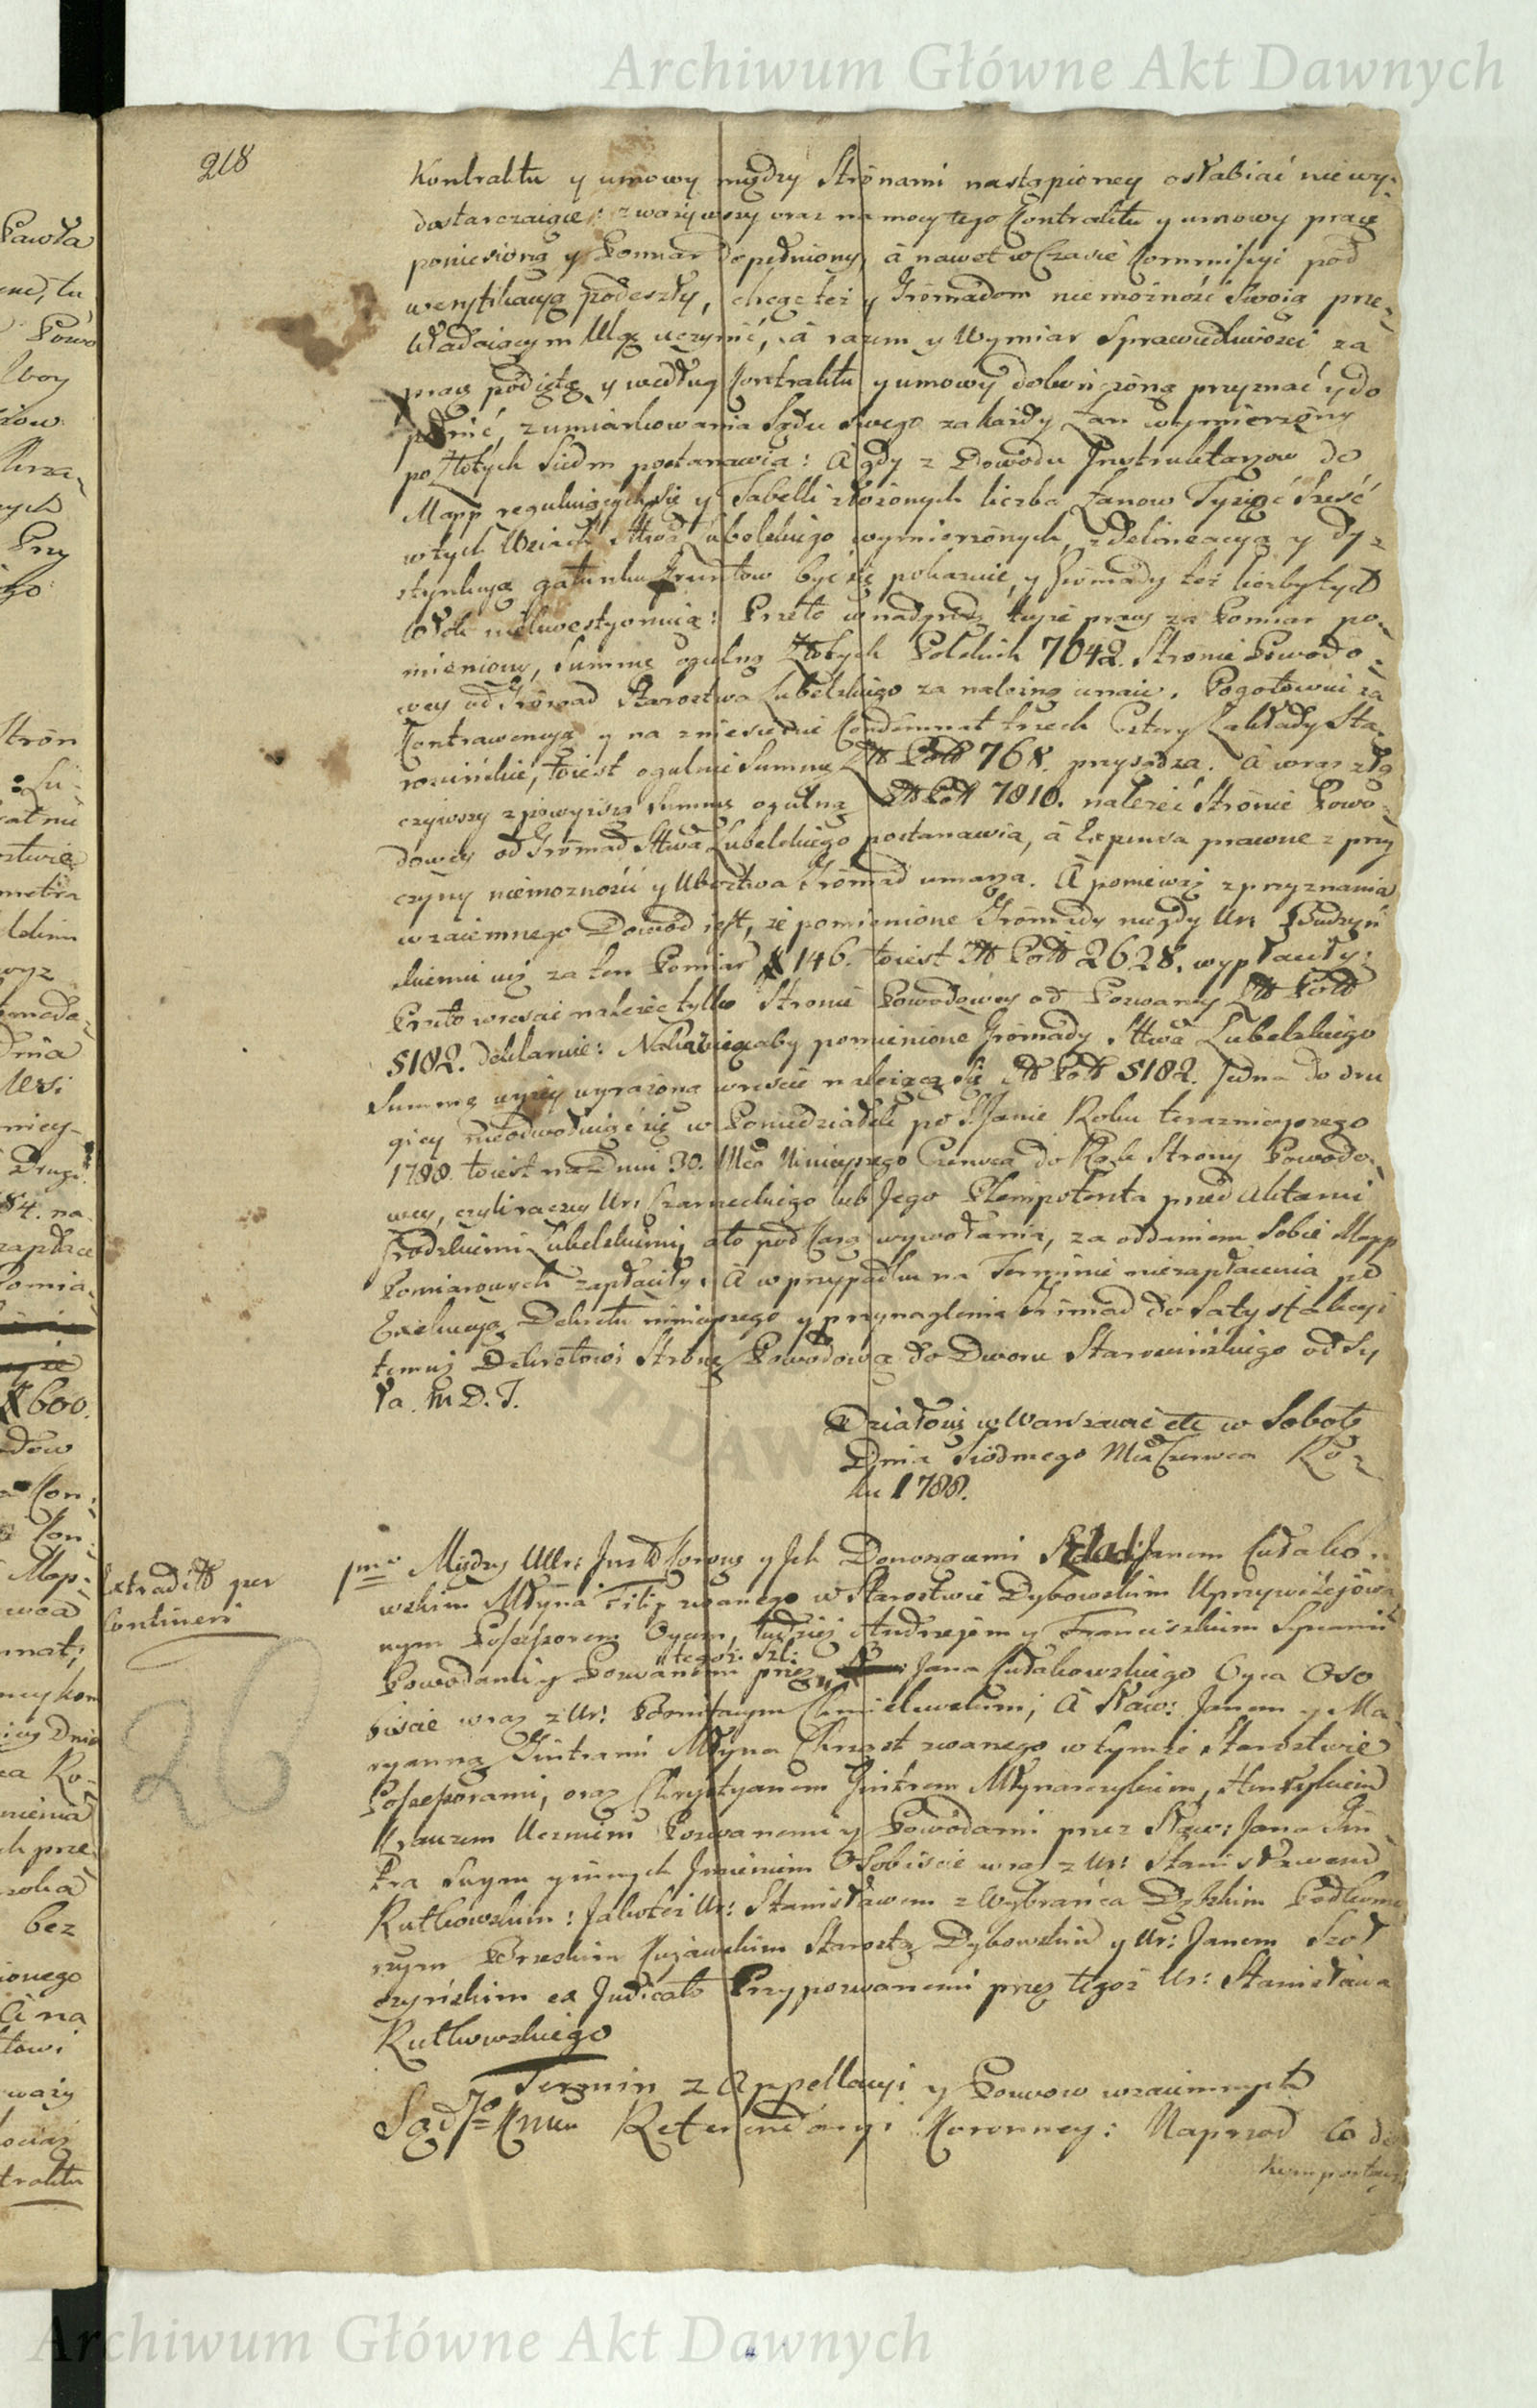 Archiwum Główne Akt Dawnych
218
Kontraktu y umowy między Stronami nastąpioney osłabiać nie wy-
dostarczaiące: zważywszy oraz na mocy tego Kontraktu y umowy pracę
poniesioną y Pomiar dopełniony, á nawet w Czasie Kommissyi pod
weryfikacyą podeszły, chcąc też y Gromadom niemożność Swoią prze-
kładaiącym Ulgę uczynić, á razem y Wymiar Sprawiedliwości za
pracę podiętą y według Kontraktu y umowy dokończoną przyznać y do
pełnić, z umiarkowania Sądu Swego za każdy Łan wymierzony
po Złotych Siedm postanawia: A gdy z Dowodu Instruktarzow do
Mapp reguluiących się y Tabelli złożonych liczba Łanow Tysiąc Sześć
w tych Wsiach Sttwa Lubelskiego wymierzonych, z delineacyą y dy-
stynkcyą gatunku Gruntow być się pokazuie, y Gromady też liczby tych
Włok niekwestyonuią: Przeto w nadgrodę teyże pracy za Pomiar po-
mieniony, Summę ogulną Złotych Polskich 7042. Stronie Powodo-
wey od Gromad Starostwa Lubelskiego za należną uznaie. Pogotowiu za
Kontrawencyą y na zniesienie Kondemnat trzech Cztery Zakłady Sta-
rościńskie, toiest ogulnie Summę Złł Poll 768. przysądza. A wraz złą
czywszy z powyższą Summę ogulną Złł Poll 7810. należeć Stronie Powo-
dowey od Gromad Sttwa Lubelskiego postanawia, á Expensa prawne z przy
czyny niemożności y Ubostwa Gromad umarza. A ponieważ z przyznania
wzaiemnego Dowod iest, że pomienione Gromady niegdy Ur:
skiemu iuż za ten Pomiar # 146. toiest Złł Poll 2628. wypłaciły:
Przeto wreście należeć tylko Stronie Powodowey od Pozwaney Złł Poll
5182. deklaruie: Nakazuiąc aby pomienione Gromady Sttwa Lubelskiego
Summę wyżey wyrażoną wreście należącą się Złł Poll 5182. Jedna do dru
giey nieodwołuiąc się w Poniedziałek po S. Janie Roku teraznieyszego
1788. toiest na Dniu 30. Mca Ninieyszego Czerwca do Rąk Strony Powodo-
wey, czyli raczey Ur: Czarneckiego lub Jego Plenipotenta przed Aktami
Grodzkiemi Lubelskiemi, á to pod Karą wywołania, za oddaniem Sobie Mapp
Pomiarowych zapłaciły. A w przypadku na Terminie niezapłacenia po
Exekucyą Dekretu ninieyszego y przynaglenie Gromad do Satysfakcyi
temuż Dekretowi Stronę Powodową do Dworu Starościńskiego odsy
ła. M. D. J.
Działo się w Warszawie etc w Sobotę
Dnia Siodmego Mca Czerwca Ro-
ku 1788.
Extraditt per
Continens
26
1mo Między Ur: Instt Korony y Jch Donoszącemi Sław: Janem Kułako-
wskim Młyna Filip zwanego w Starostwie Dybowskim Uprzywilejowa
nym Possessorem Oycem, tudzież Andrzejem y Franciszkiem Synami
Powodami y Pozwanemi przez tegoż Szl: Jana Kułakowskiego Oyca Oso
biście wraz z Ur: Bonifacym Chmielewskim, A Sław: Janem y Ma
ryanną Gintrami Młyna Chrost zwanego w tymże Starostwie
Possessorami, oraz Chrystyanem Gintrem Młynarczykiem,
Krauzem Uczniem Pozwanemi y Powodami przez Sław: Jana Gin
tra Swym y innych Jmieniem Osobiście wraz z Ur: Stanisławem
Rutkowskim: Jako też Ur: Stanisławem z Wybranca Dąbskim Podkomo
rzym Brzeskim Kujawskim Starostą Dybowskim y Ur: Janem Szoł
czyńskim ex Judicato Przypozwanemi przez tegoż Ur: Stanisława
Rutkowskiego
Termin z Appellacyi y Pozwow wzaiemnych
Sąd Referendaryi Koronney: Naprzod Co do
komportacyi
Archiwum Główne Akt Dawnych